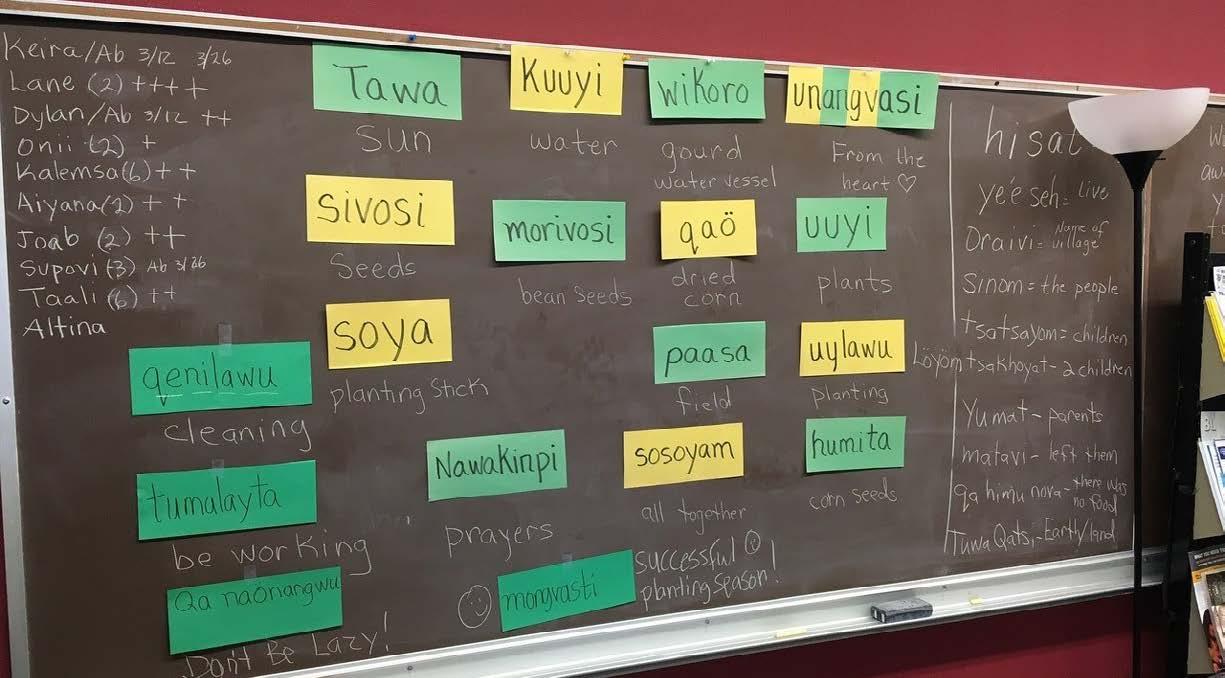 Keira/Ab 3/12 3/26
Lane (2) ++++
Dylan/Ab 3/12 ++
Onii (2) +
Kalemsa(6)++
Aiyana(2) ++
Joab (2) ++
Supovi(3) Ab 3/26
Taali(6) ++
Altina
qenilawu
cleaning
tumalayta
be working
Qa naönangwu
Don't Be Lazy!
Tawa
sun
Kuuyi
water
wiKoro
gourd
water vessel
unangvasi
From the
heart ♡
sivosi
Seeds
morivosi
bean seeds
qaö
dried
corn
uuyi
plants
soya
planting stick
paasa
field
uylawu
planting
Nawakinpi
prayers
sosoyam
all together
humita
corn seeds
mongvasti
successful
planting season!
hisat
yeései= Live
Oraivi= Name of
village
Sinom= the people
tsatsayom= children
Löyöm tsakhoyat- 2 children
Yumat- parents
matavi- left them
qa himu nova- there was
no food
TuwaQatsi-Earth/land